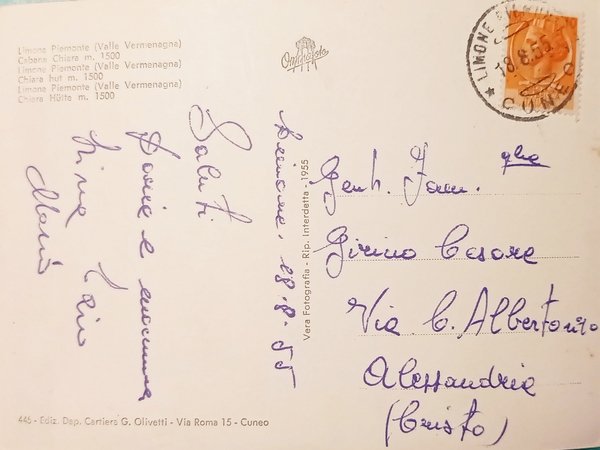 Limone Piemonte (Valle Vermenagna)
Cabana Chiara m. 1500
Limone Piemonte (Valle Vermenagna)
Chiara hut m. 1500
Limone Piemonte (Valle Vermenagna)
Chiara Hütte m. 1500
LIMONE
18.8.55
CUNEO
Limone, 18-8-55
Saluti
Maria
Vera Fotografia - Rip. Interdetta - 1955
Gent. Fam.glia
Girino Cesare
Via C. Albertonio
Alessandria
(Cristo)
445 - Ediz. Dep. Cartiera G. Olivetti - Via Roma 15 - Cuneo